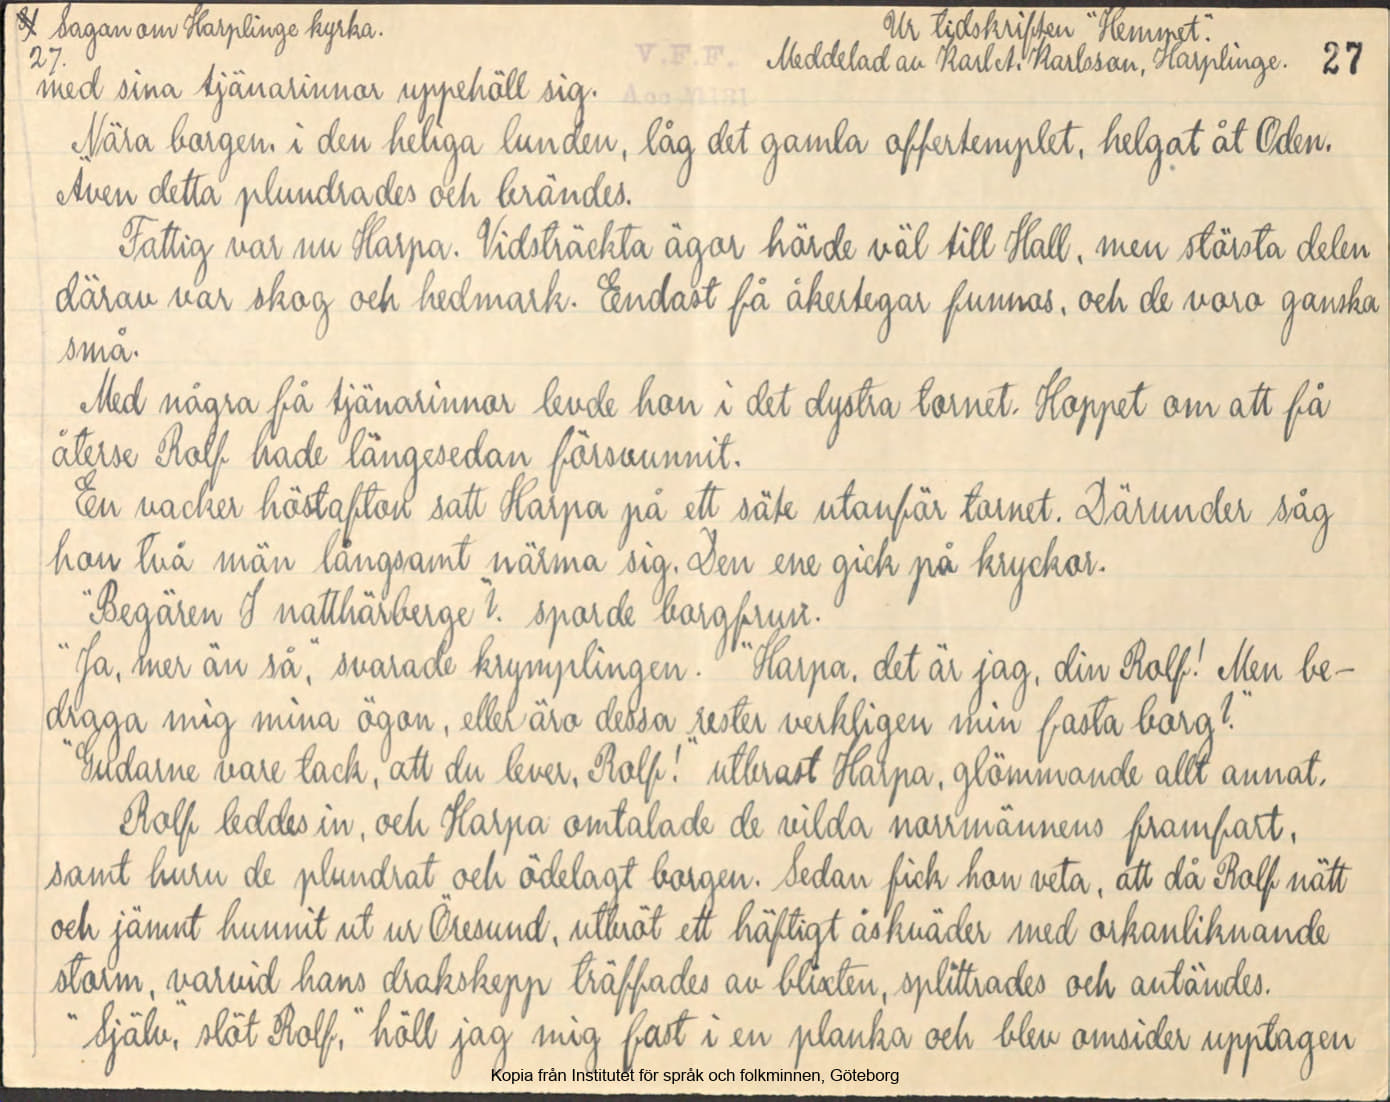 Sagan om Harplinge kyrka.
Ur tidskriften "Hemmet".
27.
Meddelad av Karl A. Karlsson, Harplinge.
27
V.F.F.
med sina tjänarinnor uppehöll sig.
Nära borgen, i den heliga lunden, låg det gamla offertemplet, helgat åt Oden.
Även detta plundrades och brändes.
Fattig var nu Harpa. Vidsträckta ägor hörde väl till Hall, men största delen
därav var skog och hedmark. Endast få åkertegar funnos, och de voro ganska
små.
Med några få tjänarinnor levde hon i det dystra tornet. Hoppet om att få
återse Rolf hade längesedan försvunnit.
En vacker höstafton satt Harpa på ett säte utanför tornet. Därunder såg
hon två män långsamt närma sig. Den ene gick på kryckor.
"Begären I natthärberge"?. sporde borgfrun.
"Ja, mer än så," svarade krymplingen. "Harpa, det är jag, din Rolf! Men be-
draga mig mina ögon, eller äro dessa rester verkligen min fasta borg?."
"Gudarne vare tack, att du lever, Rolf!" utbrast Harpa, glömmande allt annat.
Rolf leddes in, och Harpa omtalade de vilda norrmännens framfart,
samt huru de plundrat och ödelagt borgen. Sedan fick hon veta, att då Rolf nätt
och jämnt hunnit ut ur Öresund, utbröt ett häftigt åskväder med orkanliknande
storm, varvid hans drakskepp träffades av blixten, splittrades och antändes.
"Själv," slöt Rolf, "höll jag mig fast i en planka och blev omsider upptagen
Kopia från Institutet för språk och folkminnen, Göteborg